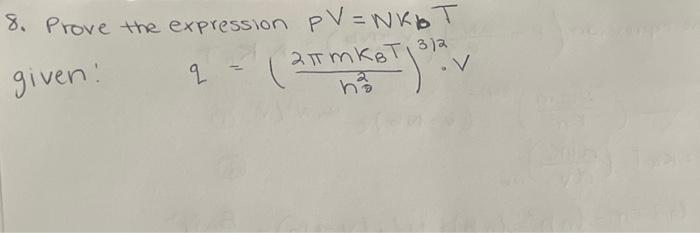 8. Prove the expression PV = NKbT
given: q = (2πmKBT / h²)^3/2 · V